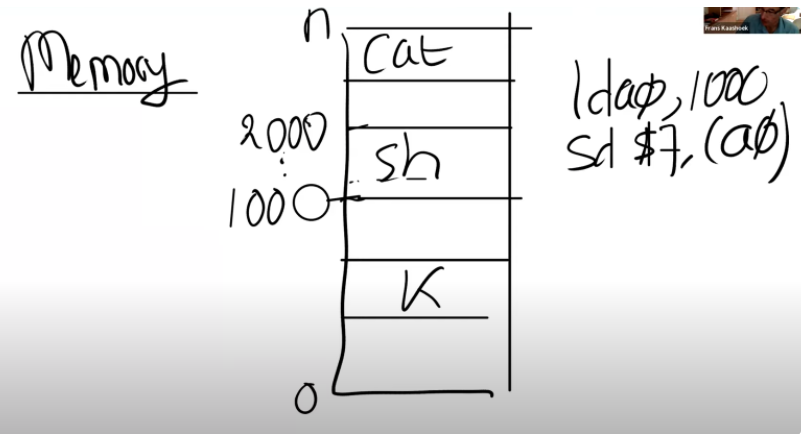 Memory
n
cat
2000
sh
1000
K
0
ld a0, 1000
sd $7, (a0)
Frans Kaashoek